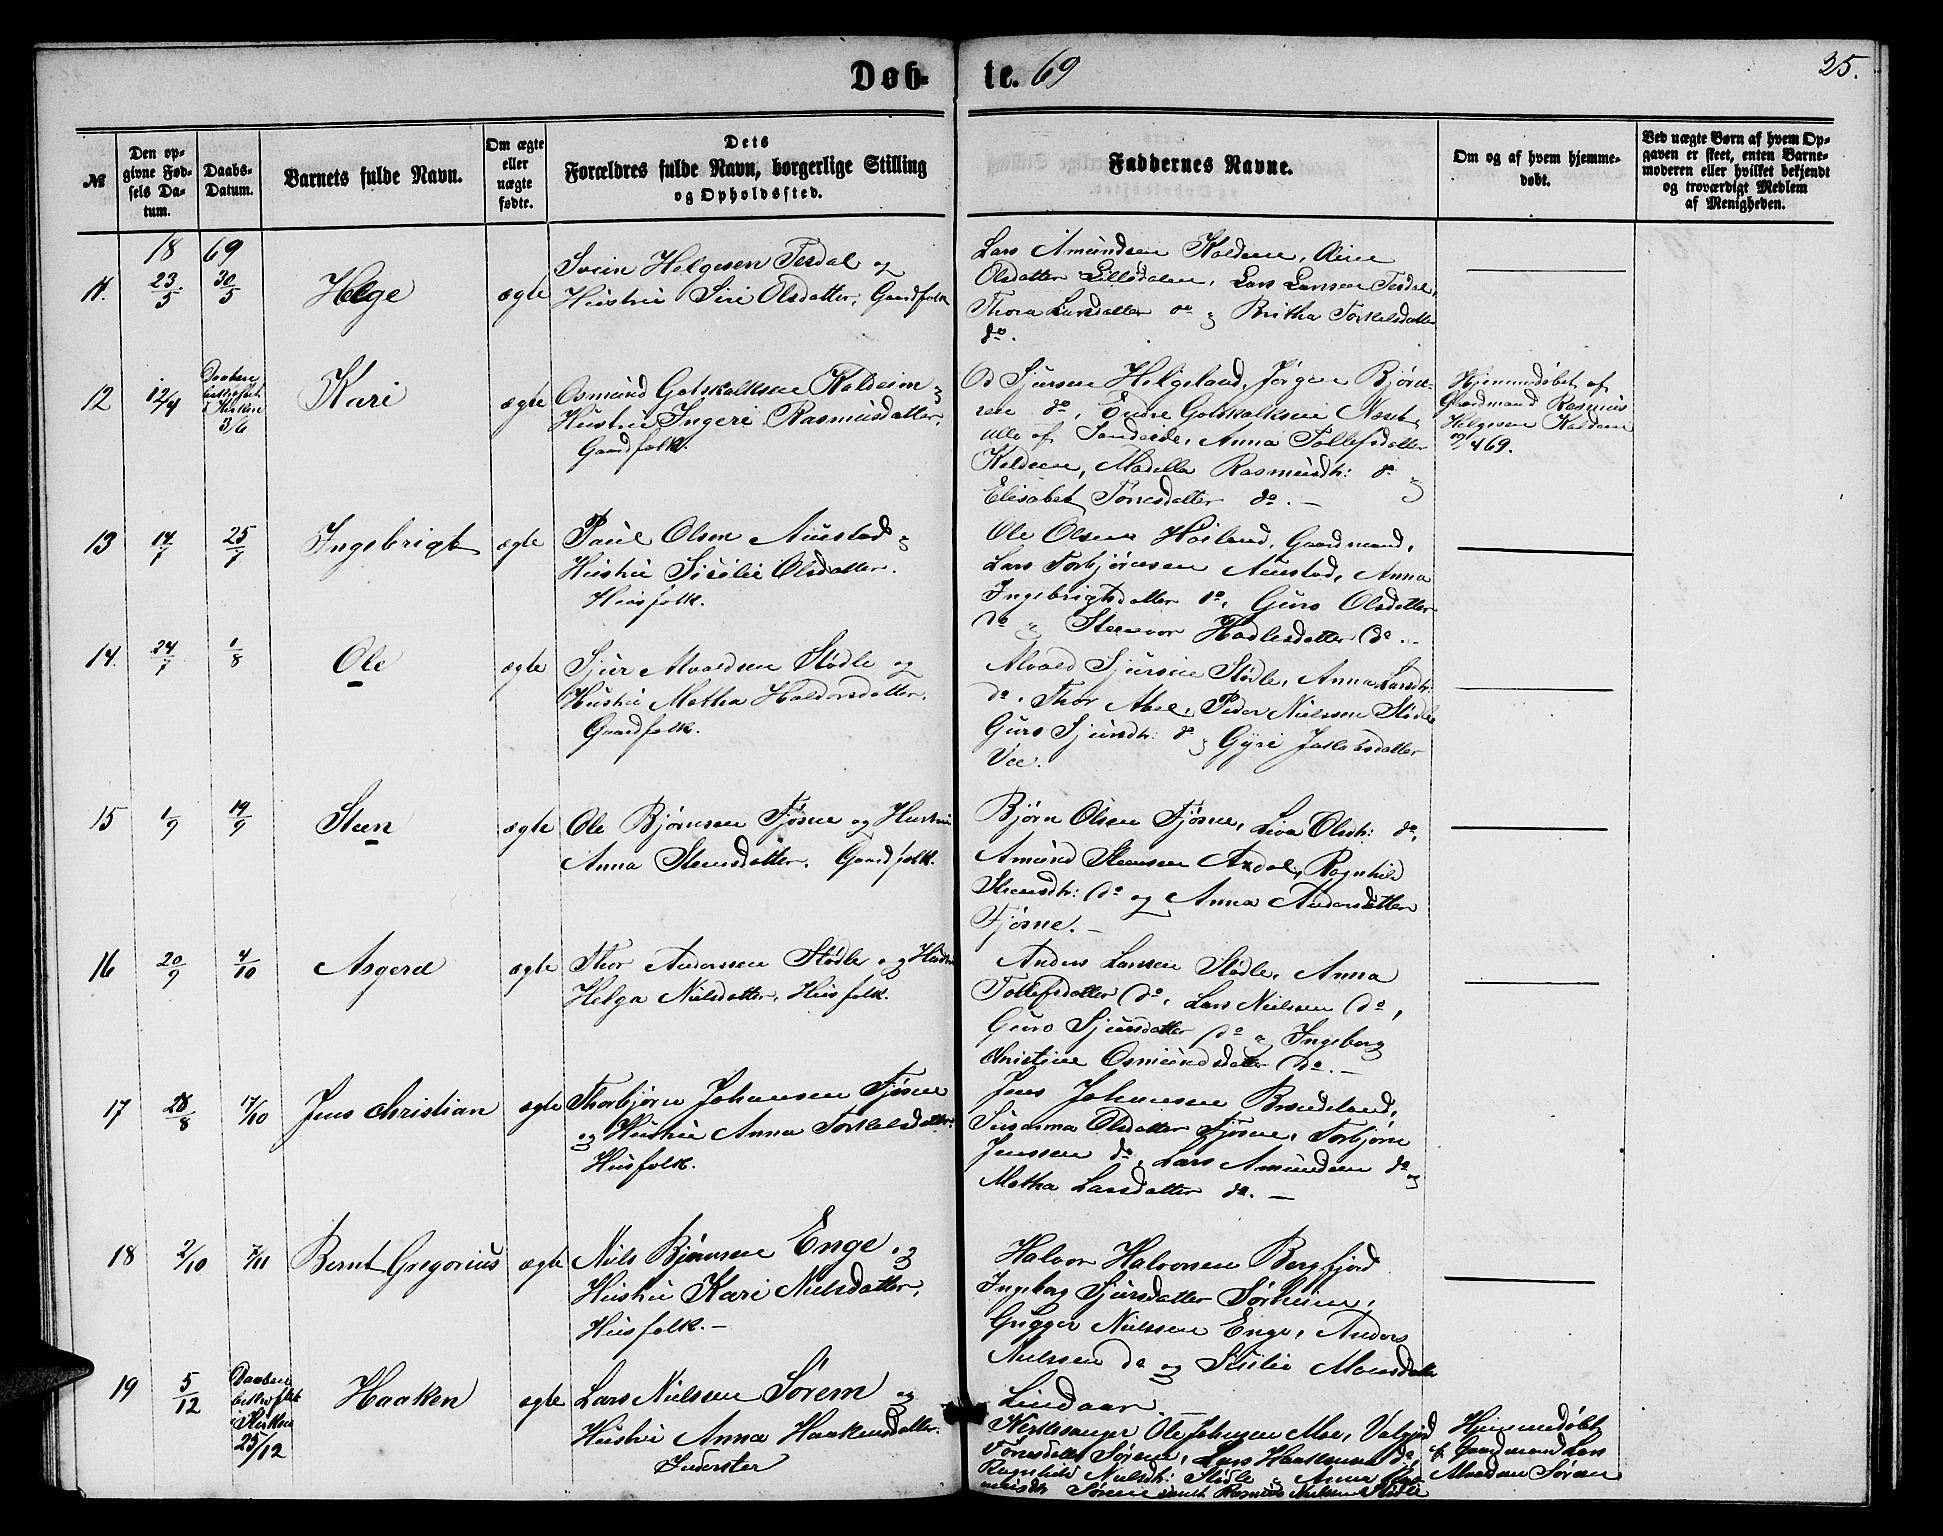 Døb-
te. 69
25.
№
Den op-
givne Fød-
sels Da-
tum.
Daabs-
Datum.
Barnets fulde Navn.
Om ægte
eller
uægte
fødte.
Dets
Forældres fulde Navn, borgerlige Stilling
og Opholdssted.
Faddernes Navne.
Om og af hvem hjemme-
døbt.
Ved uægte Børn af hvem Op-
gaven er skeet, enten Barne-
moderen eller hvilket bekjendt
og troværdigt Medlem
af Menigheden.
18 69
11. 23/5 30/5 Helge ægte
Svein Helgesen Tesdal og
Hustru Siri Olsdatter, Gaardfolk
Lars Amundsen Koldeen,
Olsdatter Lillodalen, Lars Larsen Tesdal,
Thora Larsdatter do og Britha Torkelsdatter
do.
12 12/4
Daaben
bekræftet
i Kirken
3/6
Kari ægte
Osmund Gotskalksen Koldeim og
Hustru Ingeri Rasmusdatter,
Gaardfolk.
Od Sjursen Helgeland, Jørgen Bjørn-
sen do, Endre Gotskalksen Næst
af Sandeide, Anna Tollefsdatter
Koldeen, Madella Rasmusdtr: do og
Elisabet Tonesdatter do. —
Hjemmedøbt af
Gaardmand Rasmus
Helgesen Koldeen
/4 69.
13 17/7 25/7 Ingebrigt ægte
Paul Olsen Austad og
Hustru Sisilie Olsdatter.
Husfolk.
Ole Olsen Høiland, Gaardmand,
Lars Torbjørnsen Austad, Anna
Ingebrigtsdatter do, Guro Olsdatter
do og Steenvor Hadlesdatter do. -
14. 24/7 1/8 Ole ægte
Sjur Alvaldsen Stødle og
Hustru Metha Haldorsdatter,
Gaardfolk.
Alvald Sjursen Stødle, Anna Larsdtr:
do, Thor Abel, Peder Nielssen Stødle
Guro Sjursdtr: do og Gyri Jakobsdatter
Vee.
15 1/9 19/9 Steen ægte
Ole Bjørnsen Fjøsne og Hustru
Anna Steensdatter. Gaardfolk.
Bjørn Olsen Fjøsne, Liva Olsdtr: do,
Amund Steensen Axdal, Ragnhild
Steensdtr: do og Anna Andersdatter
Fjøsne. —
16 20/9 4/10 Asgerd ægte
Thor Anderssen Stødle og Hustru
Helga Nielsdatter, Husfolk.
Anders Larssen Stødle, Anna
Tollefsdatter do, Lars Nielssen do,
Guro Sjursdatter do og Ingeborg
Christine Osmundsdatter do. —
17 28/8 17/10 Jens Christian ægte
Thorbjørn Johansen Fjøsne
og Hustru Anna Torkelsdatter.
Husfolk.
Jens Johansen Brandeland,
Susanna Olsdatter Fjøsne, Torbjørn
Jenssen do, Lars Amundsen do og
Metha Larsdatter do. —
18 2/10 7/11 Bernt Gregorius ægte
Niels Bjørnsen Enge og
Hustru Kari Nielsdatter,
Husfolk. —
Halvor Halvorsen Bergfjord
Ingeborg Sjursdatter Sørheim,
Gregger Nielssen Enge, Anders
Nielssen do og Sisilie Monsdatter
Lindaas.
19 5/12
Daaben
bekræftet
i Kirken
25/12
Haaken ægte
Lars Nielssen Sørem og
Hustru Anna Haakensdatter.
Inderster
Kirkesanger Ole Johnsen Moe, Valgjerd
Tonesdatter Sørem, Lars Haakensen do,
Ragnhild Nielsdtr: Stødle og Anna Ras-
musdtr Sørem samt Rasmus Nielsen Stødle
Hjemmedøbt
af Gaardmand Lars
Alvadsen Sørem